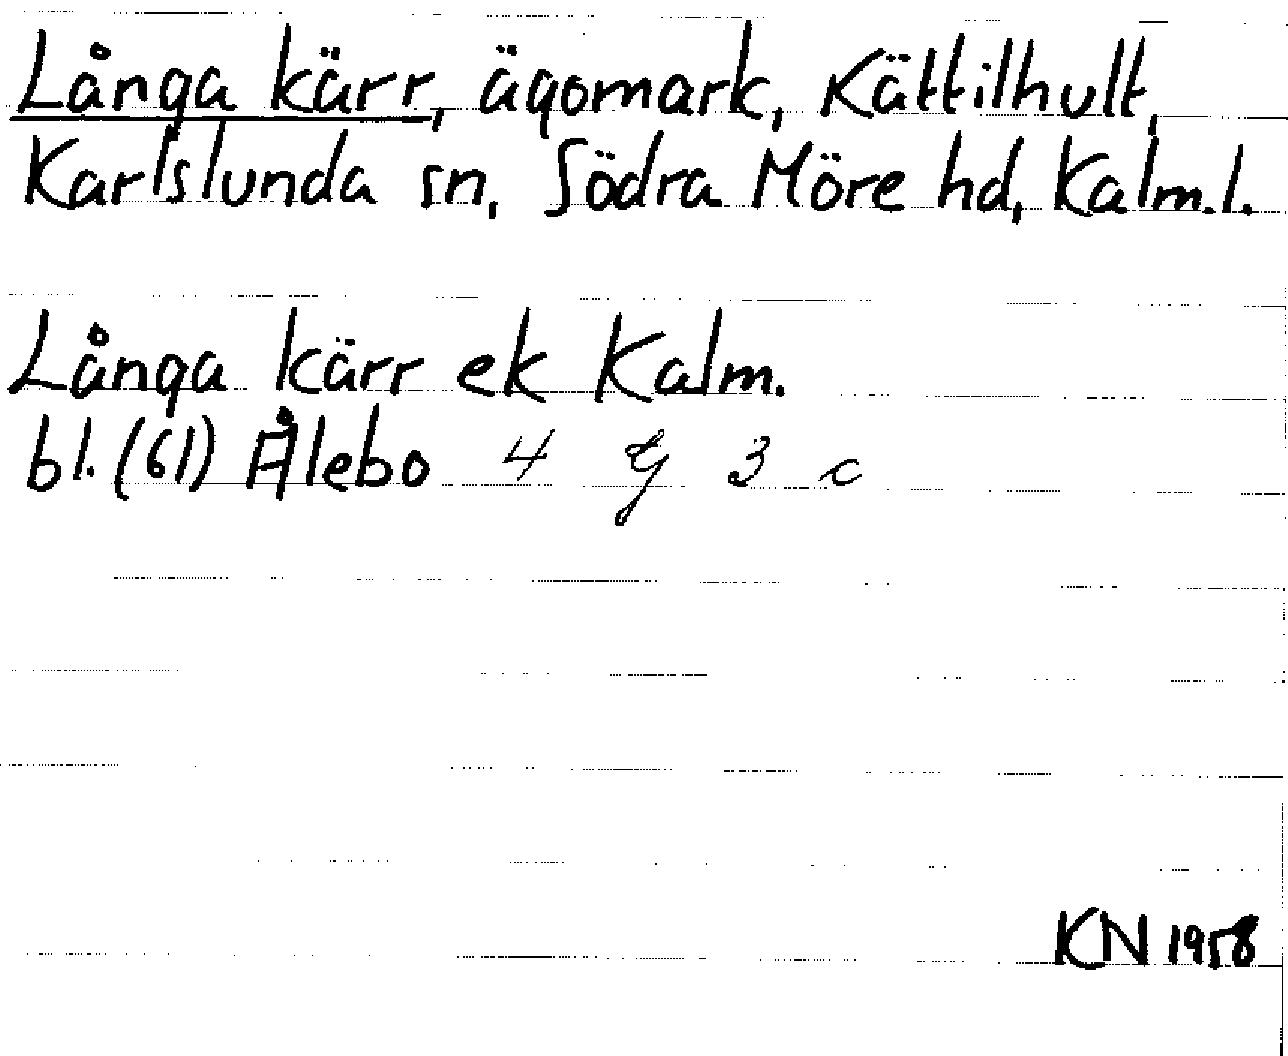 Långa kärr, ägomark, Kättilhult,
Karlslunda sn, Södra Möre hd, Kalm.l.
Långa kärr ek Kalm.
bl. (61) Ålebo 4 G 3 c
KN 1958